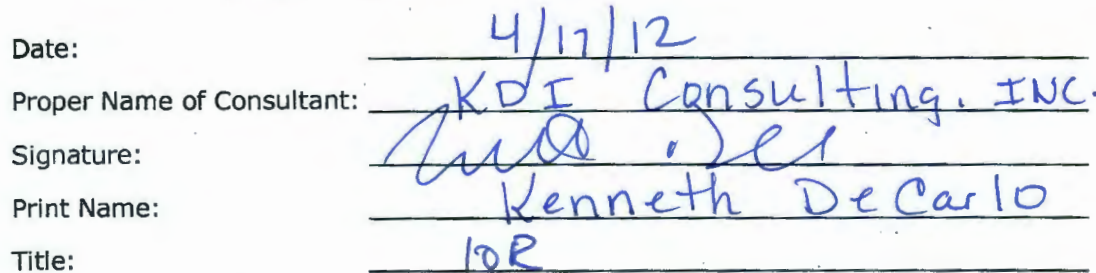 Date: 4/17/12
Proper Name of Consultant: KDI Consulting, INC.
Signature:
Print Name: Kenneth DeCarlo
Title: IOR